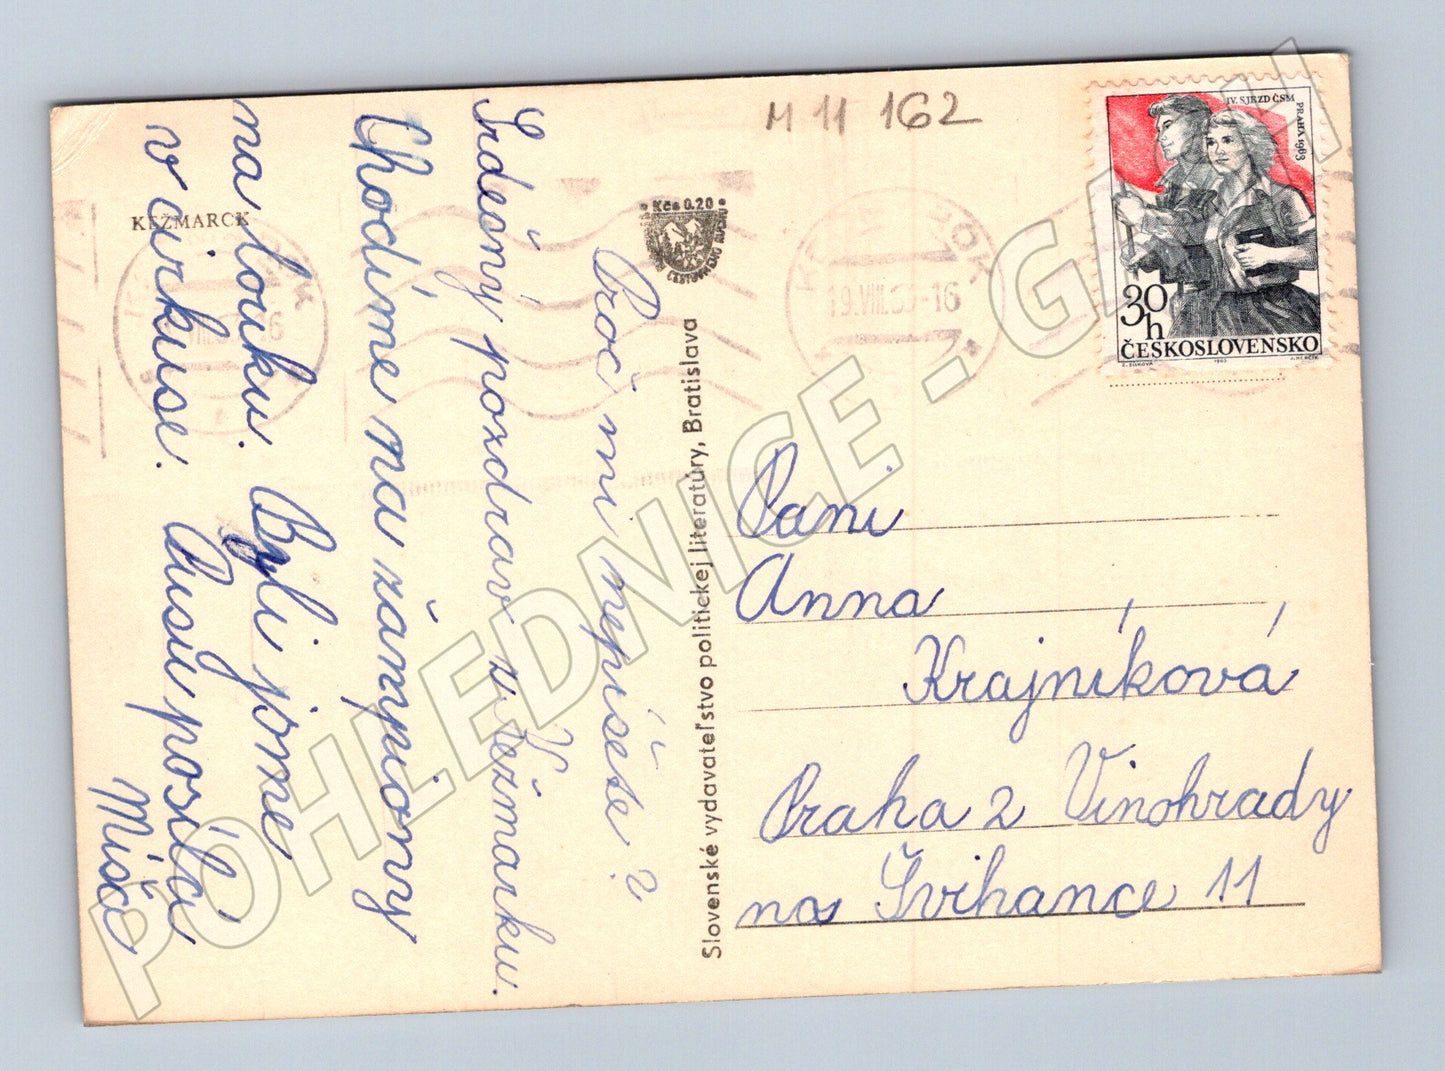 M 11 162
KEŽMAROK
Kčs 0.20
IV. SJEZD ČSM
PRAHA 1963
30 h
ČESKOSLOVENSKO
1963
19.VIII.63-16
Slovenské vydavateľstvo politickej literatúry, Bratislava
Proč mi nepíšete?
Srdečný pozdrav z Kežmarku.
Chodíme na žampiony
na louku. Byli jsme
v cirkuse. Pusu posílá
Míša
Pani
Anna
Krajníková
Praha 2 Vinohrady
na Švihance 11
POHLEDNICE - GALI